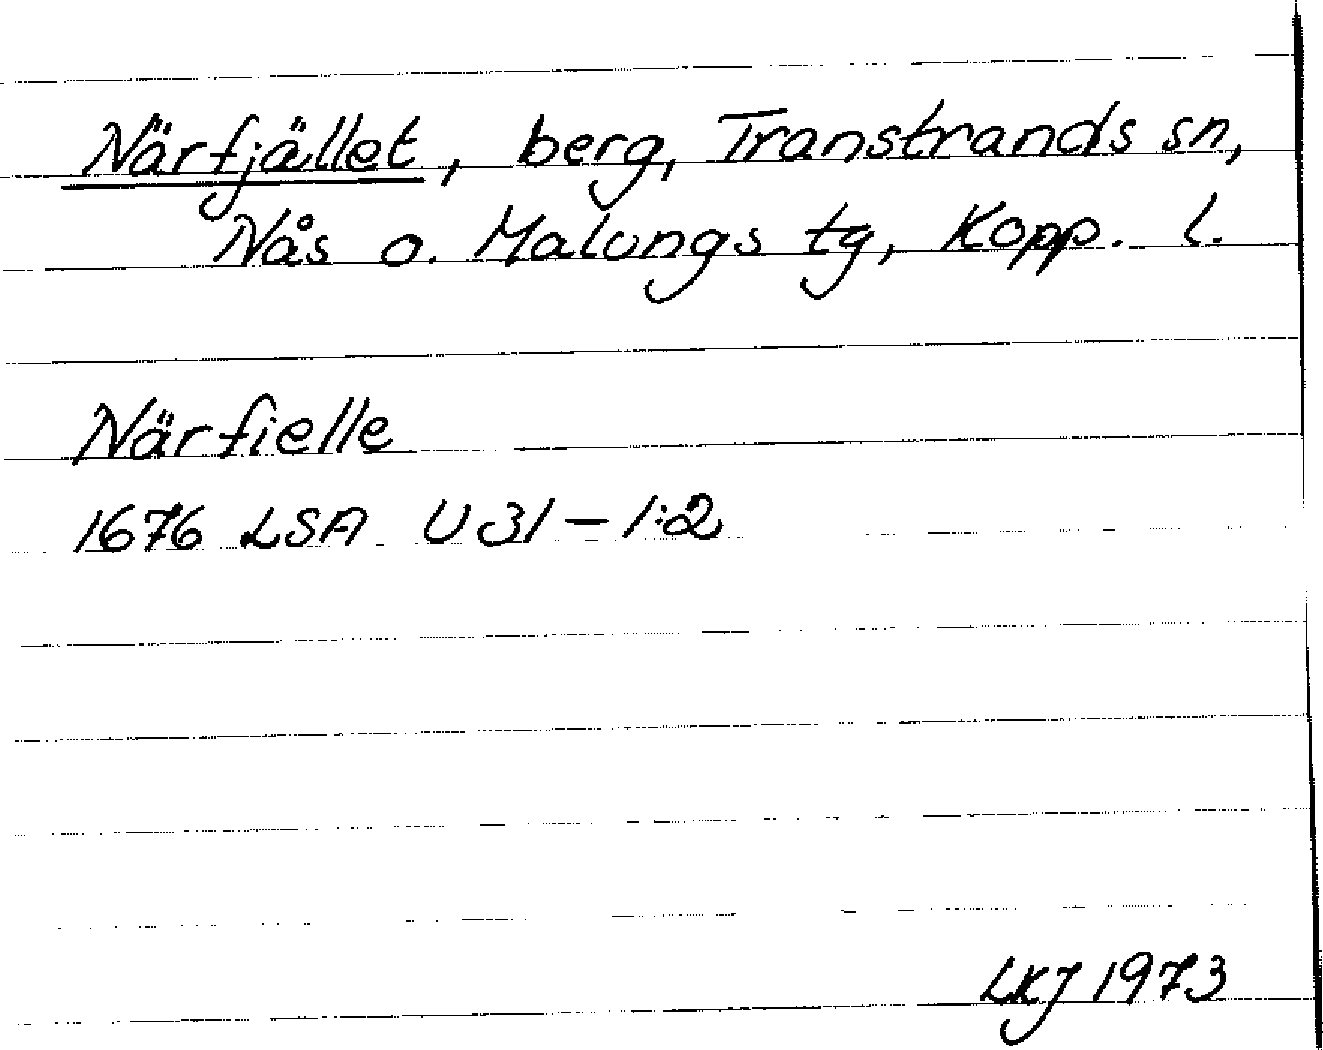 Närfjället, berg, Transtrands sn,
Nås o. Malungs tg, Kopp. l.
Närfielle
1676 LSA U 31 – 1:2
LKJ 1973